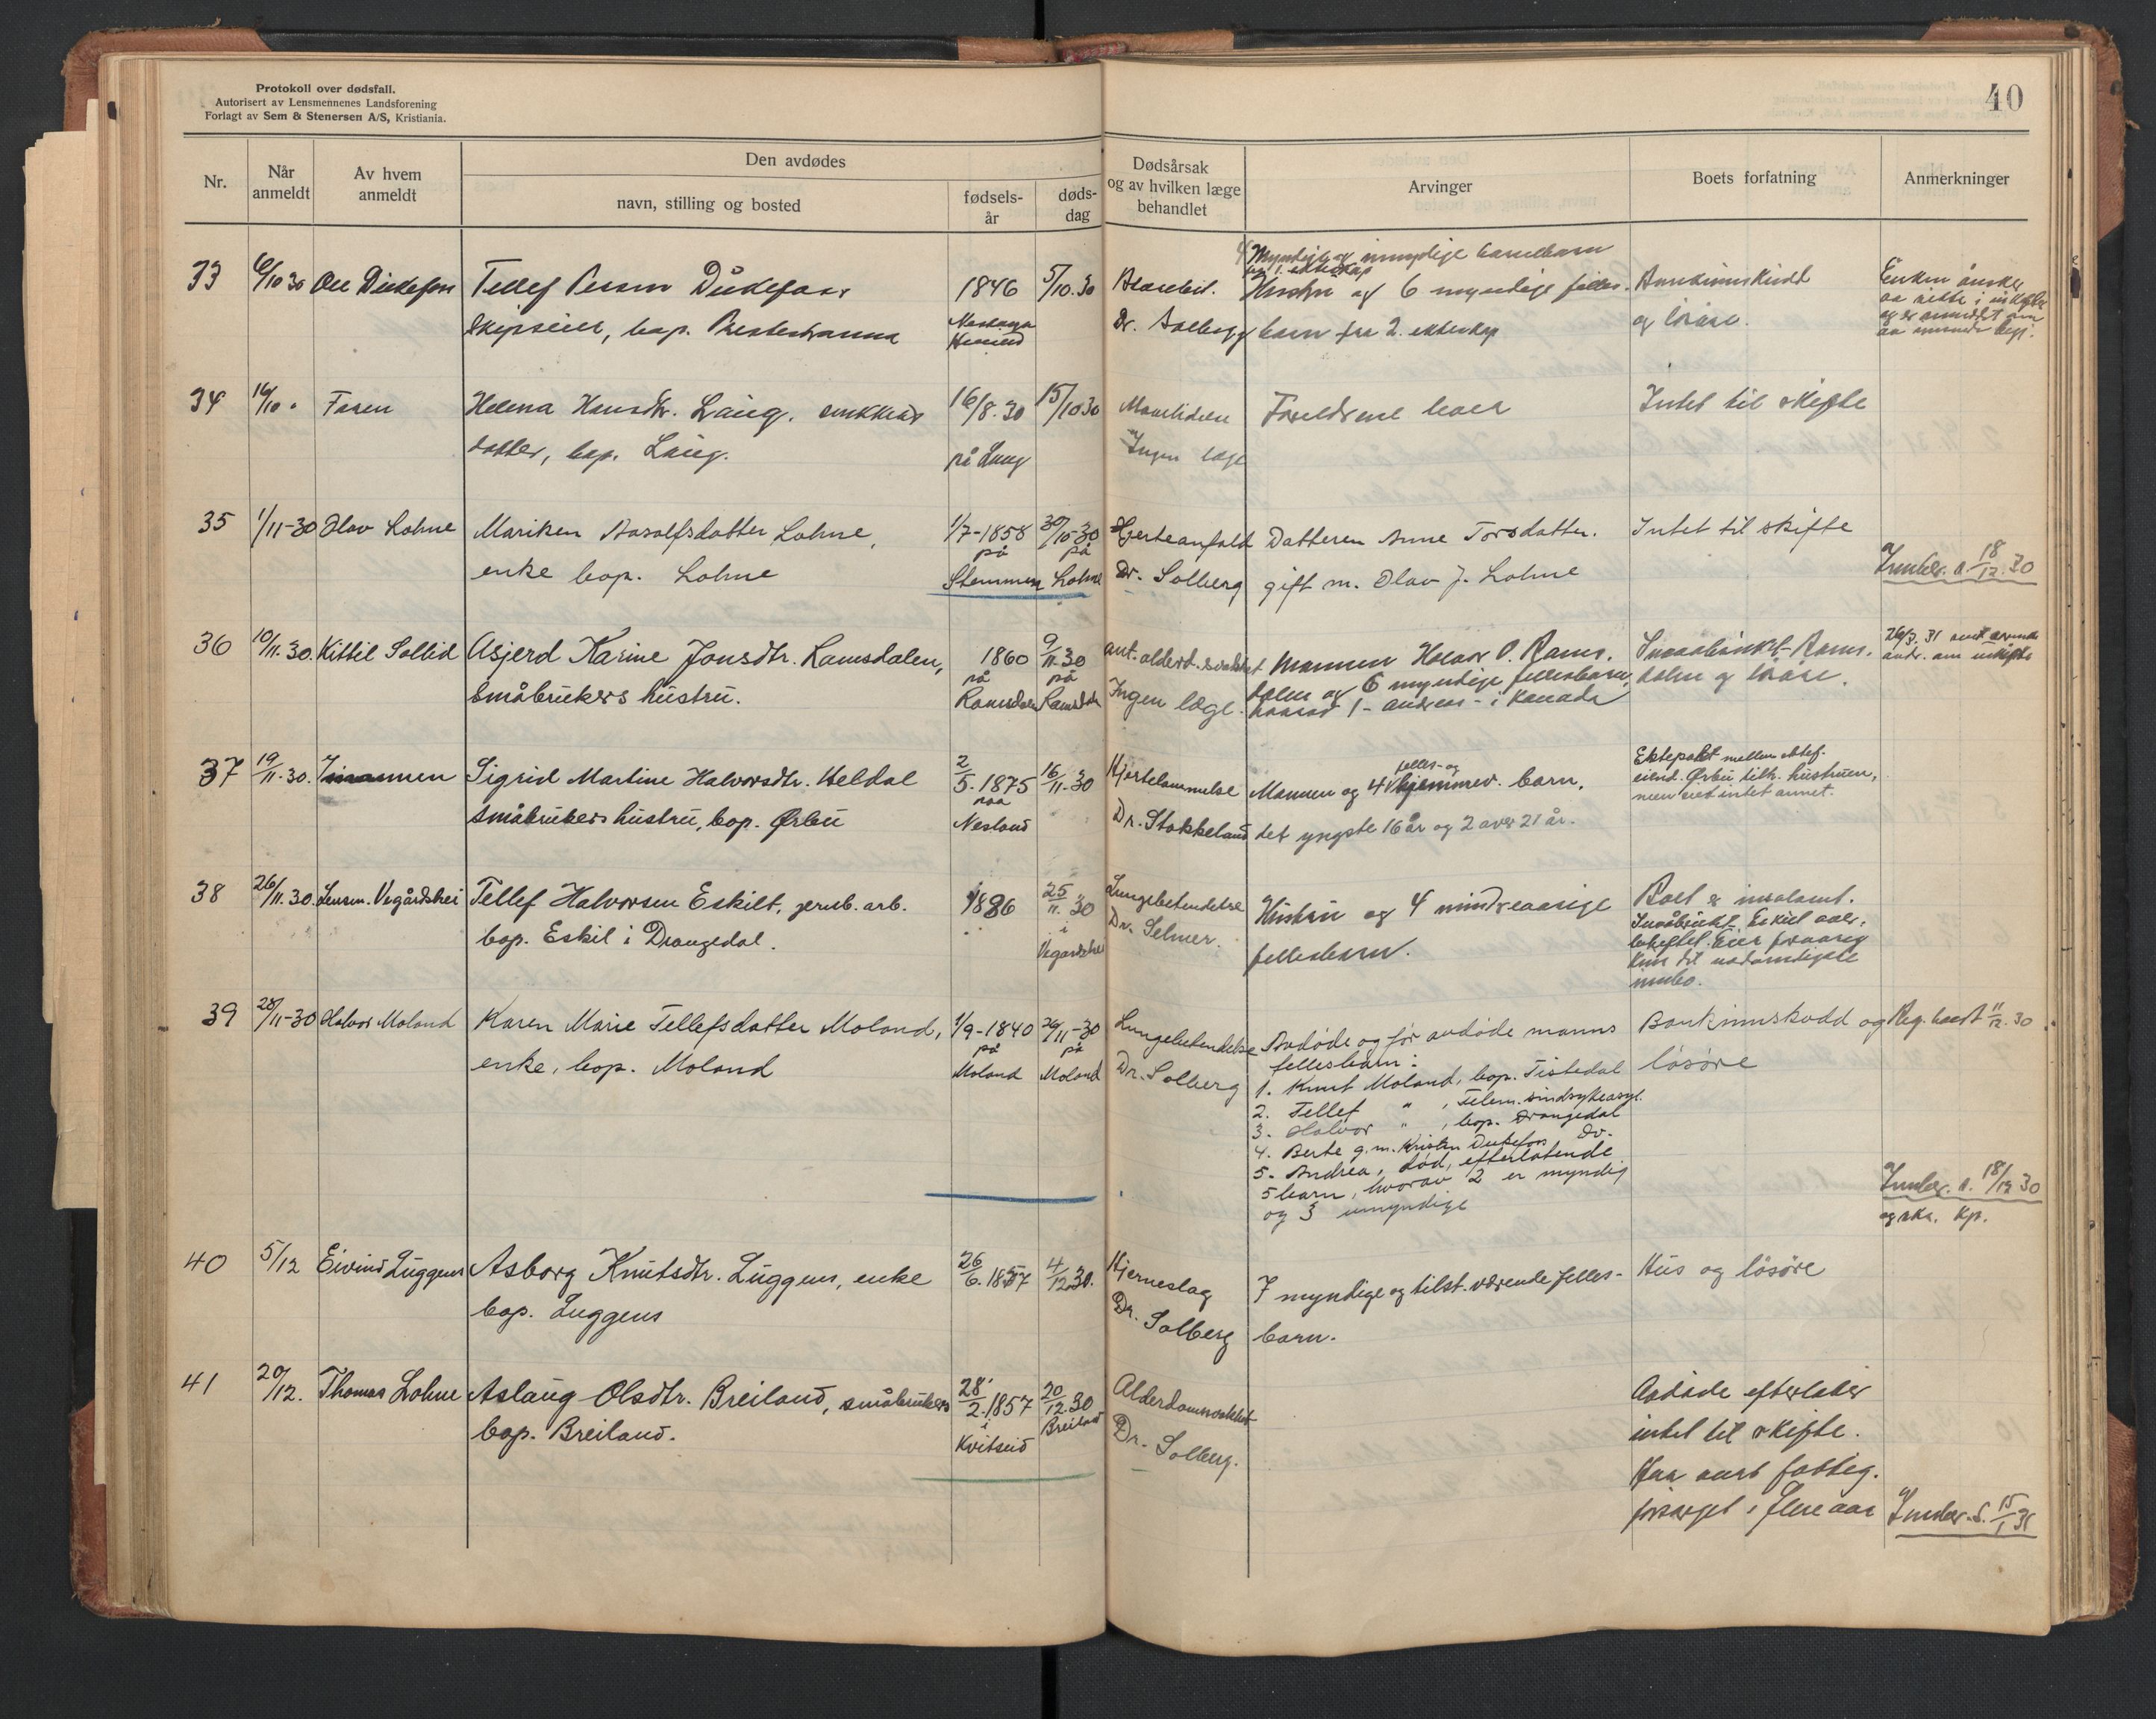 Protokoll over dødsfall.
Autorisert av Lensmennenes Landsforening
Forlagt av Sem & Stenersen A/S, Kristiania.
40
Nr.
Når anmeldt
Av hvem anmeldt
Den avdødes
navn, stilling og bosted
fødsels-år
døds-dag
Dødsårsak og av hvilken læge behandlet
Arvinger
Boets forfatning
Anmerkninger
33 6/10 30 Tellef
1846 5/10.30
Dr.
Hustru og 6 myndige felles-
barn fra 2. ekteskap
og
34 Faren
Helena Hansdtr. Laug.
datter, bop. Laug.
16/8.30
på Laug
15/10 30
Ingen læge
Foreldrene
Intet til skifte
35 1/11-30 Olav Lohne
Mariken Aasolfsdatter Lohne,
enke bop. Lohne
1/7-1858
på
Stemmen
30/10-30
på
Lohne
Hjerteanfald
Dr. Solberg
Datteren Anne Torsdatter.
gift m. Olav J. Lohne
Intet til skifte
18/12.30
36 10/11.30. Kittil Sollid
Asjerd Karine Jonsdtr. Ramsdalen,
småbrukers hustru.
1860
på
Ramsdalen
9/11.30
på
Ingen læge.
Mannen
og 6 myndige fellesbarn,
hvorav 1 - Andreas - i Kanada
og løsøre.
37 19/11.30. mannen
Sigrid Martine Halvorsdtr. Heldal
småbrukers hustru, bop. Ørbu
2/5.1875
paa
Nesland
16/11.30
Hjertelammelse
Dr. Stokkeland
felles- og
Mannen og 4 hjemmev. barn,
det yngste 16 år og 2 over 21 år.
Ektepakt mellem ektef.
eiend. Ørbu tilh. hustruen,
men intet annet.
38 26/11.30. Lensm. Vegårdshei
Tellef Halvorsen Eskilt, jernb. arb.
bop. Eskil i Drangedal.
1886
25/11 30
i
Vegårdshei
Lungebetendelse
Dr. Selmer.
Hustru og 4 mindreaarige
fellesbarn.
Boet er insolvent.
innbo.
39 28/11-30 Halvor Moland
Karen Marie Tellefsdatter Moland,
enke, bop. Moland
1/9-1840
på
Moland
26/11-30
på
Moland
Lungebetendelse
Dr. Solberg
Avdøde og før avdøde manns
fellesbarn:
1. Knut Moland, bop. Tistedal
2. Tellef " , Telem. sindsykeasyl.
3. Halvor " , bop. Drangedal
4. Berte g.m. Kristen Dukefos do.
5. Andrea, død, efterlatende
5 barn, hvorav 2 er myndig
og 3 umyndige
Bankinnskudd og
løsøre
11/12.30
18/12 30
40 5/12 Eivind Luggens
Asborg Knutsdtr. Luggens, enke
bop. Luggens
26/6.1857
4/12.30.
Hjerneslag
Dr. Solberg
7 myndige og tilst. værende felles-
barn.
Hus og løsøre
41 20/12. Thomas Lohne
Aslaug Olsdtr. Breiland, småbrukers
bop. Breiland.
28/2.1857
i
Kvitseid
20/12.30
Breiland
Dr. Solberg.
Avdøde efterlater
intet til skifte.
Har vært fattig.
forsørget i flere aar
15/1 31